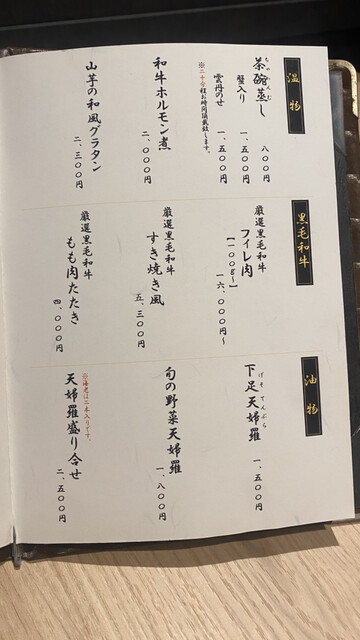 温物
茶碗蒸し
ちゃわんむし
八〇〇円
蟹入り
一、五〇〇円
雲丹のせ
一、五〇〇円
※二十分程お時間頂戴致します。
和牛ホルモン煮
二、〇〇〇円
山芋の和風グラタン
二、三〇〇円
黒毛和牛
厳選黒毛和牛
フィレ肉
【一〇〇g〜】
一六、〇〇〇円〜
厳選黒毛和牛
すき焼き風
五、三〇〇円
厳選黒毛和牛
もも肉たたき
四、〇〇〇円
油物
下足天婦羅
げそてんぷら
一、五〇〇円
旬の野菜天婦羅
一、八〇〇円
※海老は二本入りです。
天婦羅盛り合せ
二、五〇〇円